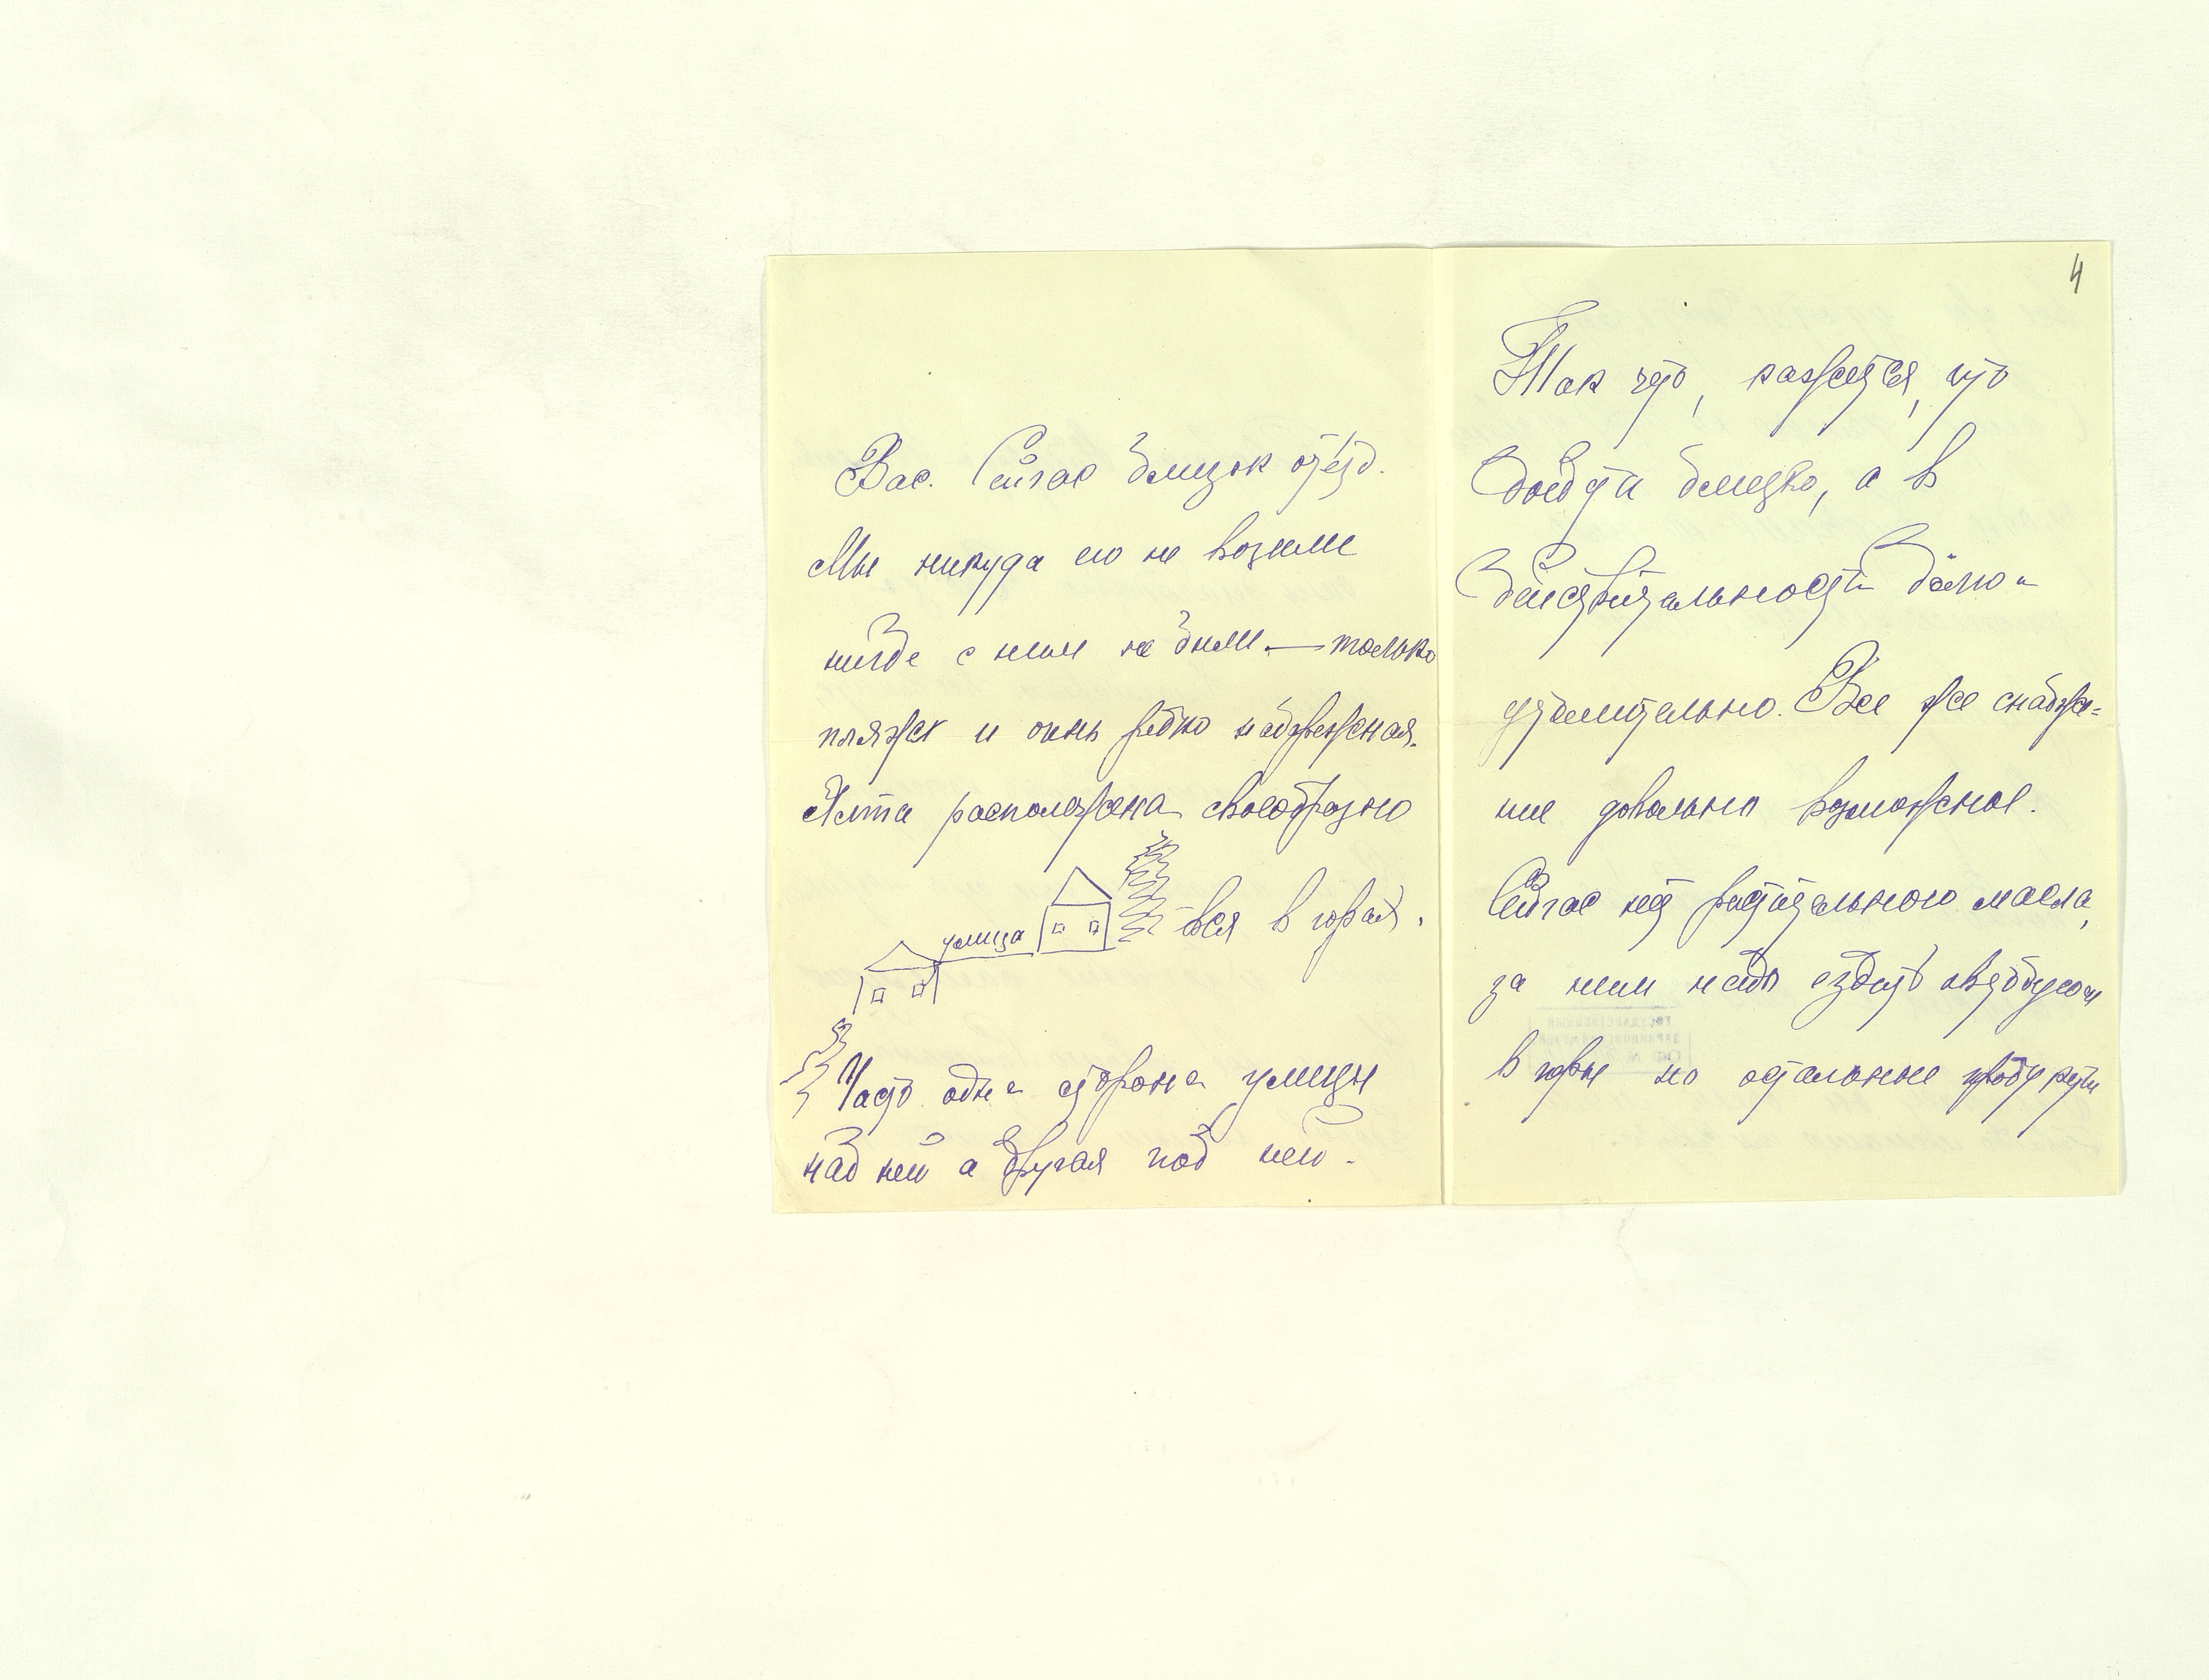 Вас. Сейчас близок отъезд.
Мы никуда его не возили
нигде с ним не были — только
пляж и очень редко набережная.
Ялта расположена своеобразно
вся в горах.
улица
Часто одна сторона улицы
над ней а другая под ней.
4
Так что, кажется, что
дойдти близко, а в
действительности далеко и
утомительно. Все же снабже=
ние довольно возможное.
Сейчас нет растительного масла,
за ним надо ездить автобусом
в горы но остальные продукты
ГОСУДАРСТВЕННЫЙ